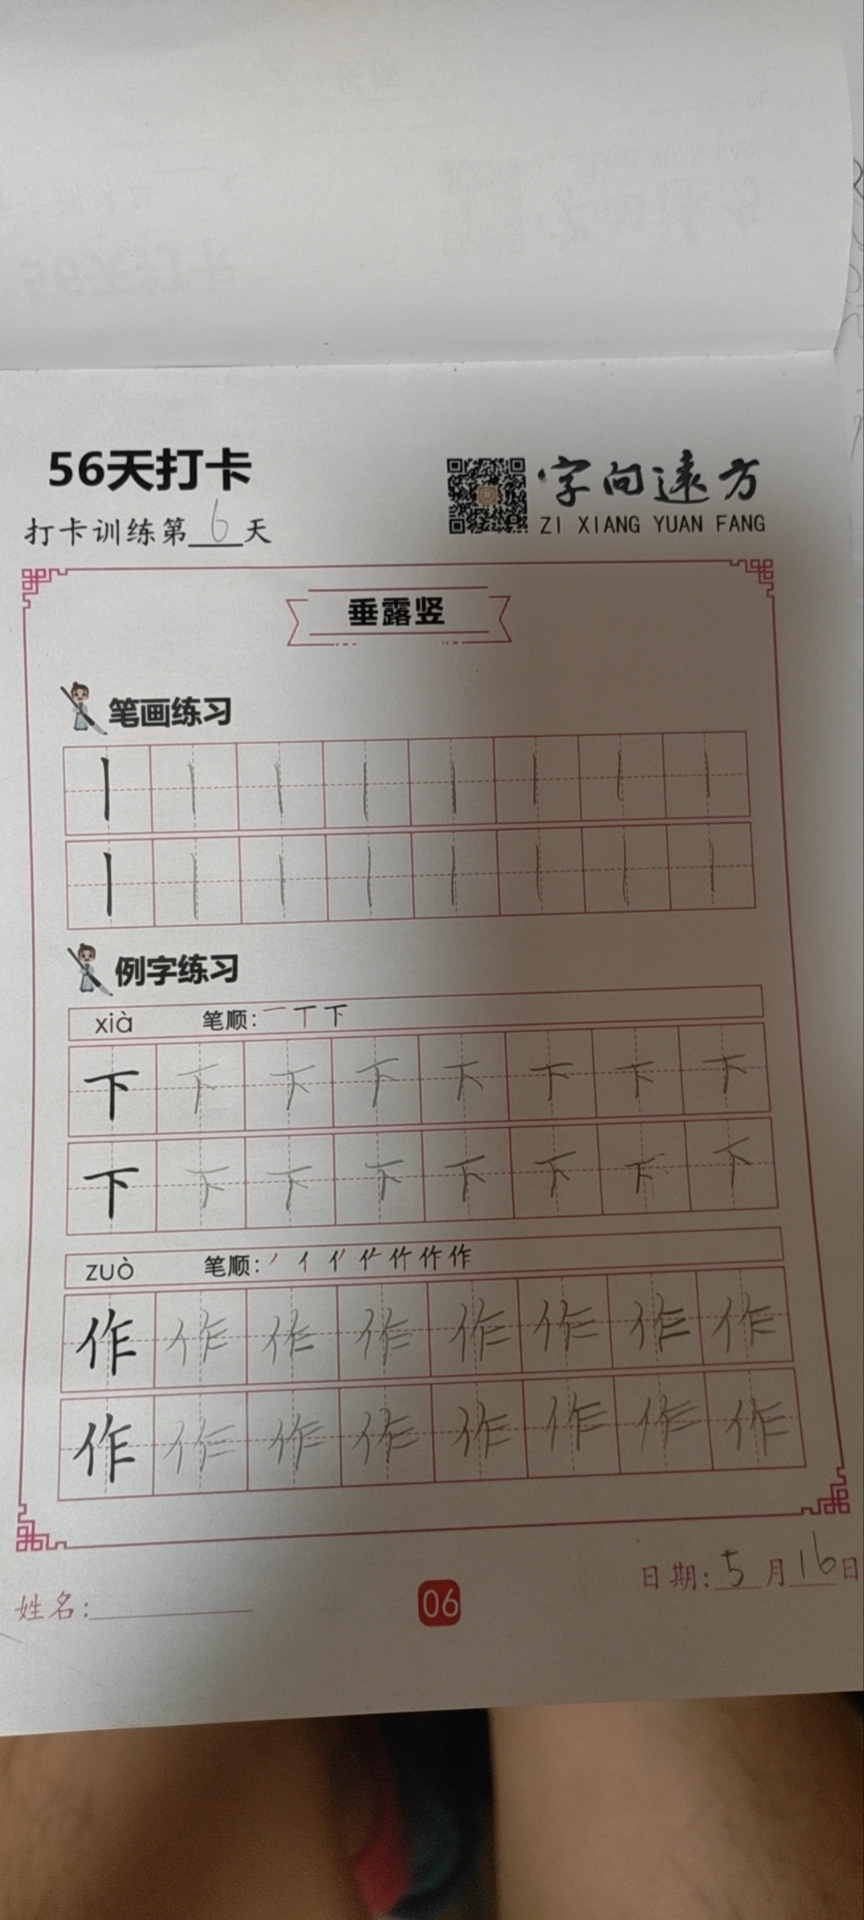 56天打卡
打卡训练第6天
字向远方
ZI XIANG YUAN FANG
垂露竖
笔画练习
丨丨丨丨丨丨丨丨
丨丨丨丨丨丨丨丨
例字练习
xià 笔顺:一丅下
下下下下下下下下
下下下下下下下下
zuò 笔顺:
作作作作作作作作
作作作作作作作作
姓名:
06
日期:5月16日